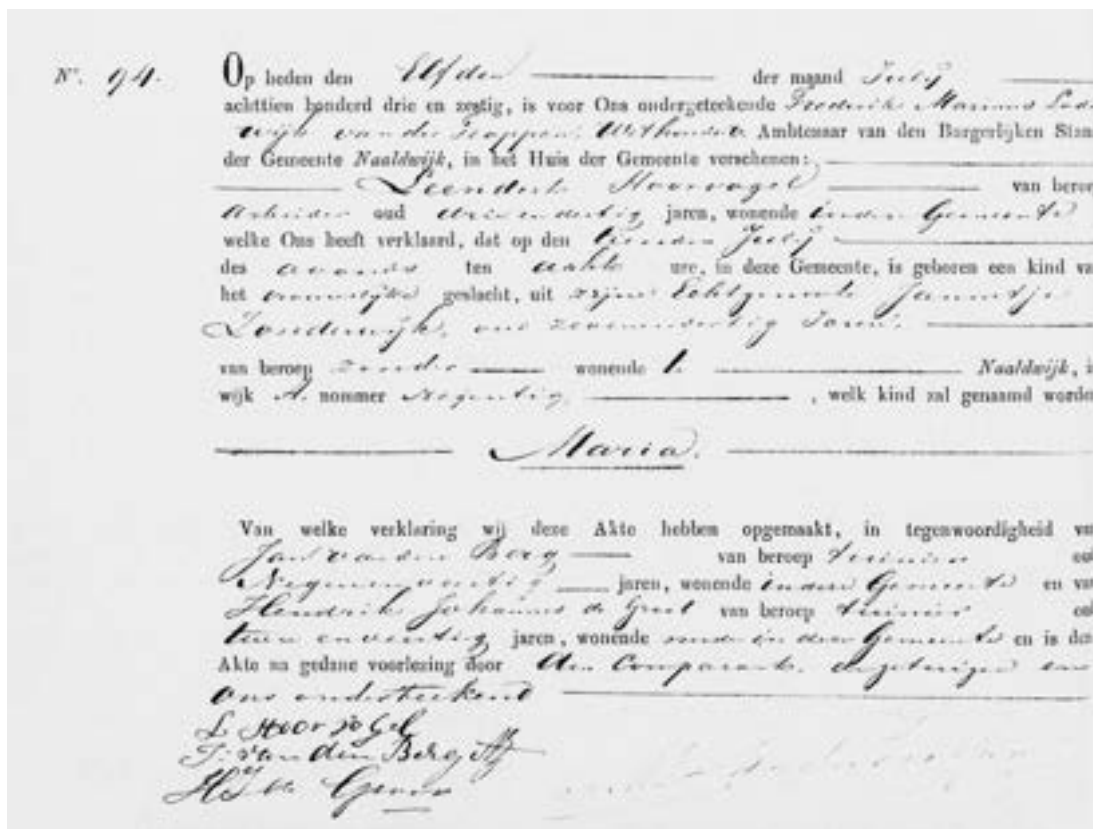 Nr. 94. Op heden den Elfden der maand Julij
achttien honderd drie en zestig, is voor Ons ondergeteekende Frederik Marinus Lode
wijk van der Wethouder Ambtenaar van den Burgerlijken Stan
der Gemeente Naaldwijk, in het Huis der Gemeente verschenen:
Leendert Hoorvogel van beroe
Arbeider oud drie en dertig jaren, wonende in deze Gemeente
welke Ons heeft verklaard, dat op den tienden Julij
des avonds ten acht ure, in deze Gemeente, is geboren een kind va
het vrouwelijke geslacht, uit zijne Echtgenoote Jannetje
oud zevenendertig Jaren,
van beroep zonder wonende te Naaldwijk, i
wijk A. nommer Negentig, , welk kind zal genaamd worde
Maria.
Van welke verklaring wij deze Akte hebben opgemaakt, in tegenwoordigheid va
Jan van den Berg van beroep tuinier ou
jaren, wonende in deze Gemeente en va
Hendrik Johannes de Groot van beroep tuinier ou
jaren, wonende mede in deze Gemeente en is dez
Akte na gedane voorlezing door den Comparant, en
ons onderteekend
L Hoorvogel
J. van den Berg